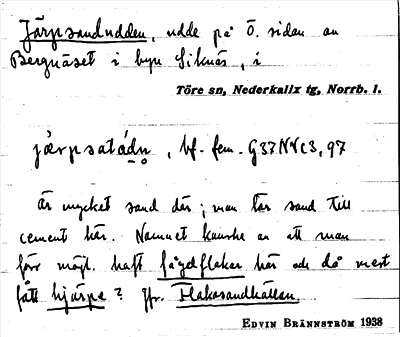 Järpsandudden, udde på Ö. sidan av
Bergnäset i byn Siknäs, i
Töre sn, Nederkalix tg, Norrb. l.
bf. fem. G37NVC3, 97
Är mycket sand där; man tar sand till
cement här. Namnet kanske av att man
förr möjl. haft fågelflakar här och då mest
fått hjärpe? Jfr. Flakasandhällan.
EDVIN BRÄNNSTRÖM 1938